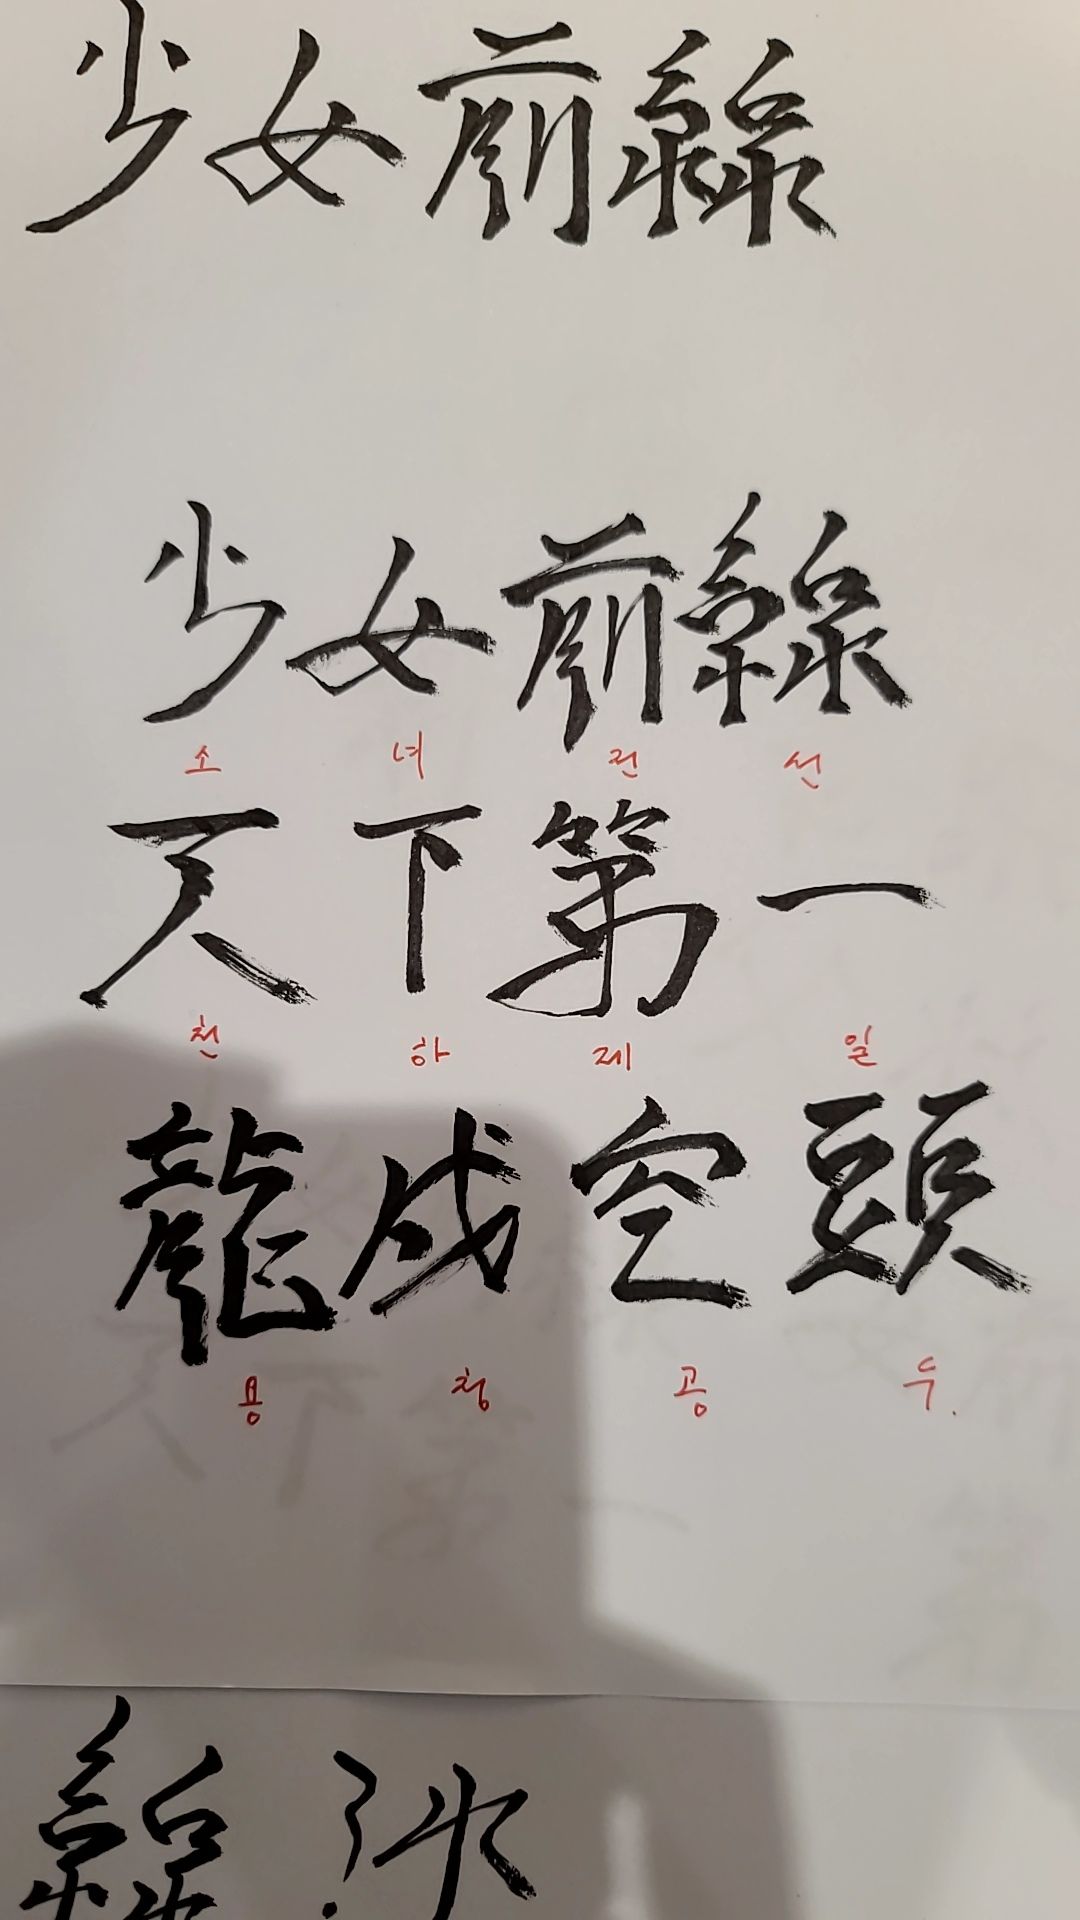 少女前線
少女前線
소 녀 전 선
天下第一
천 하 제 일
龍成空頭
용 청 공 두.
線 氷